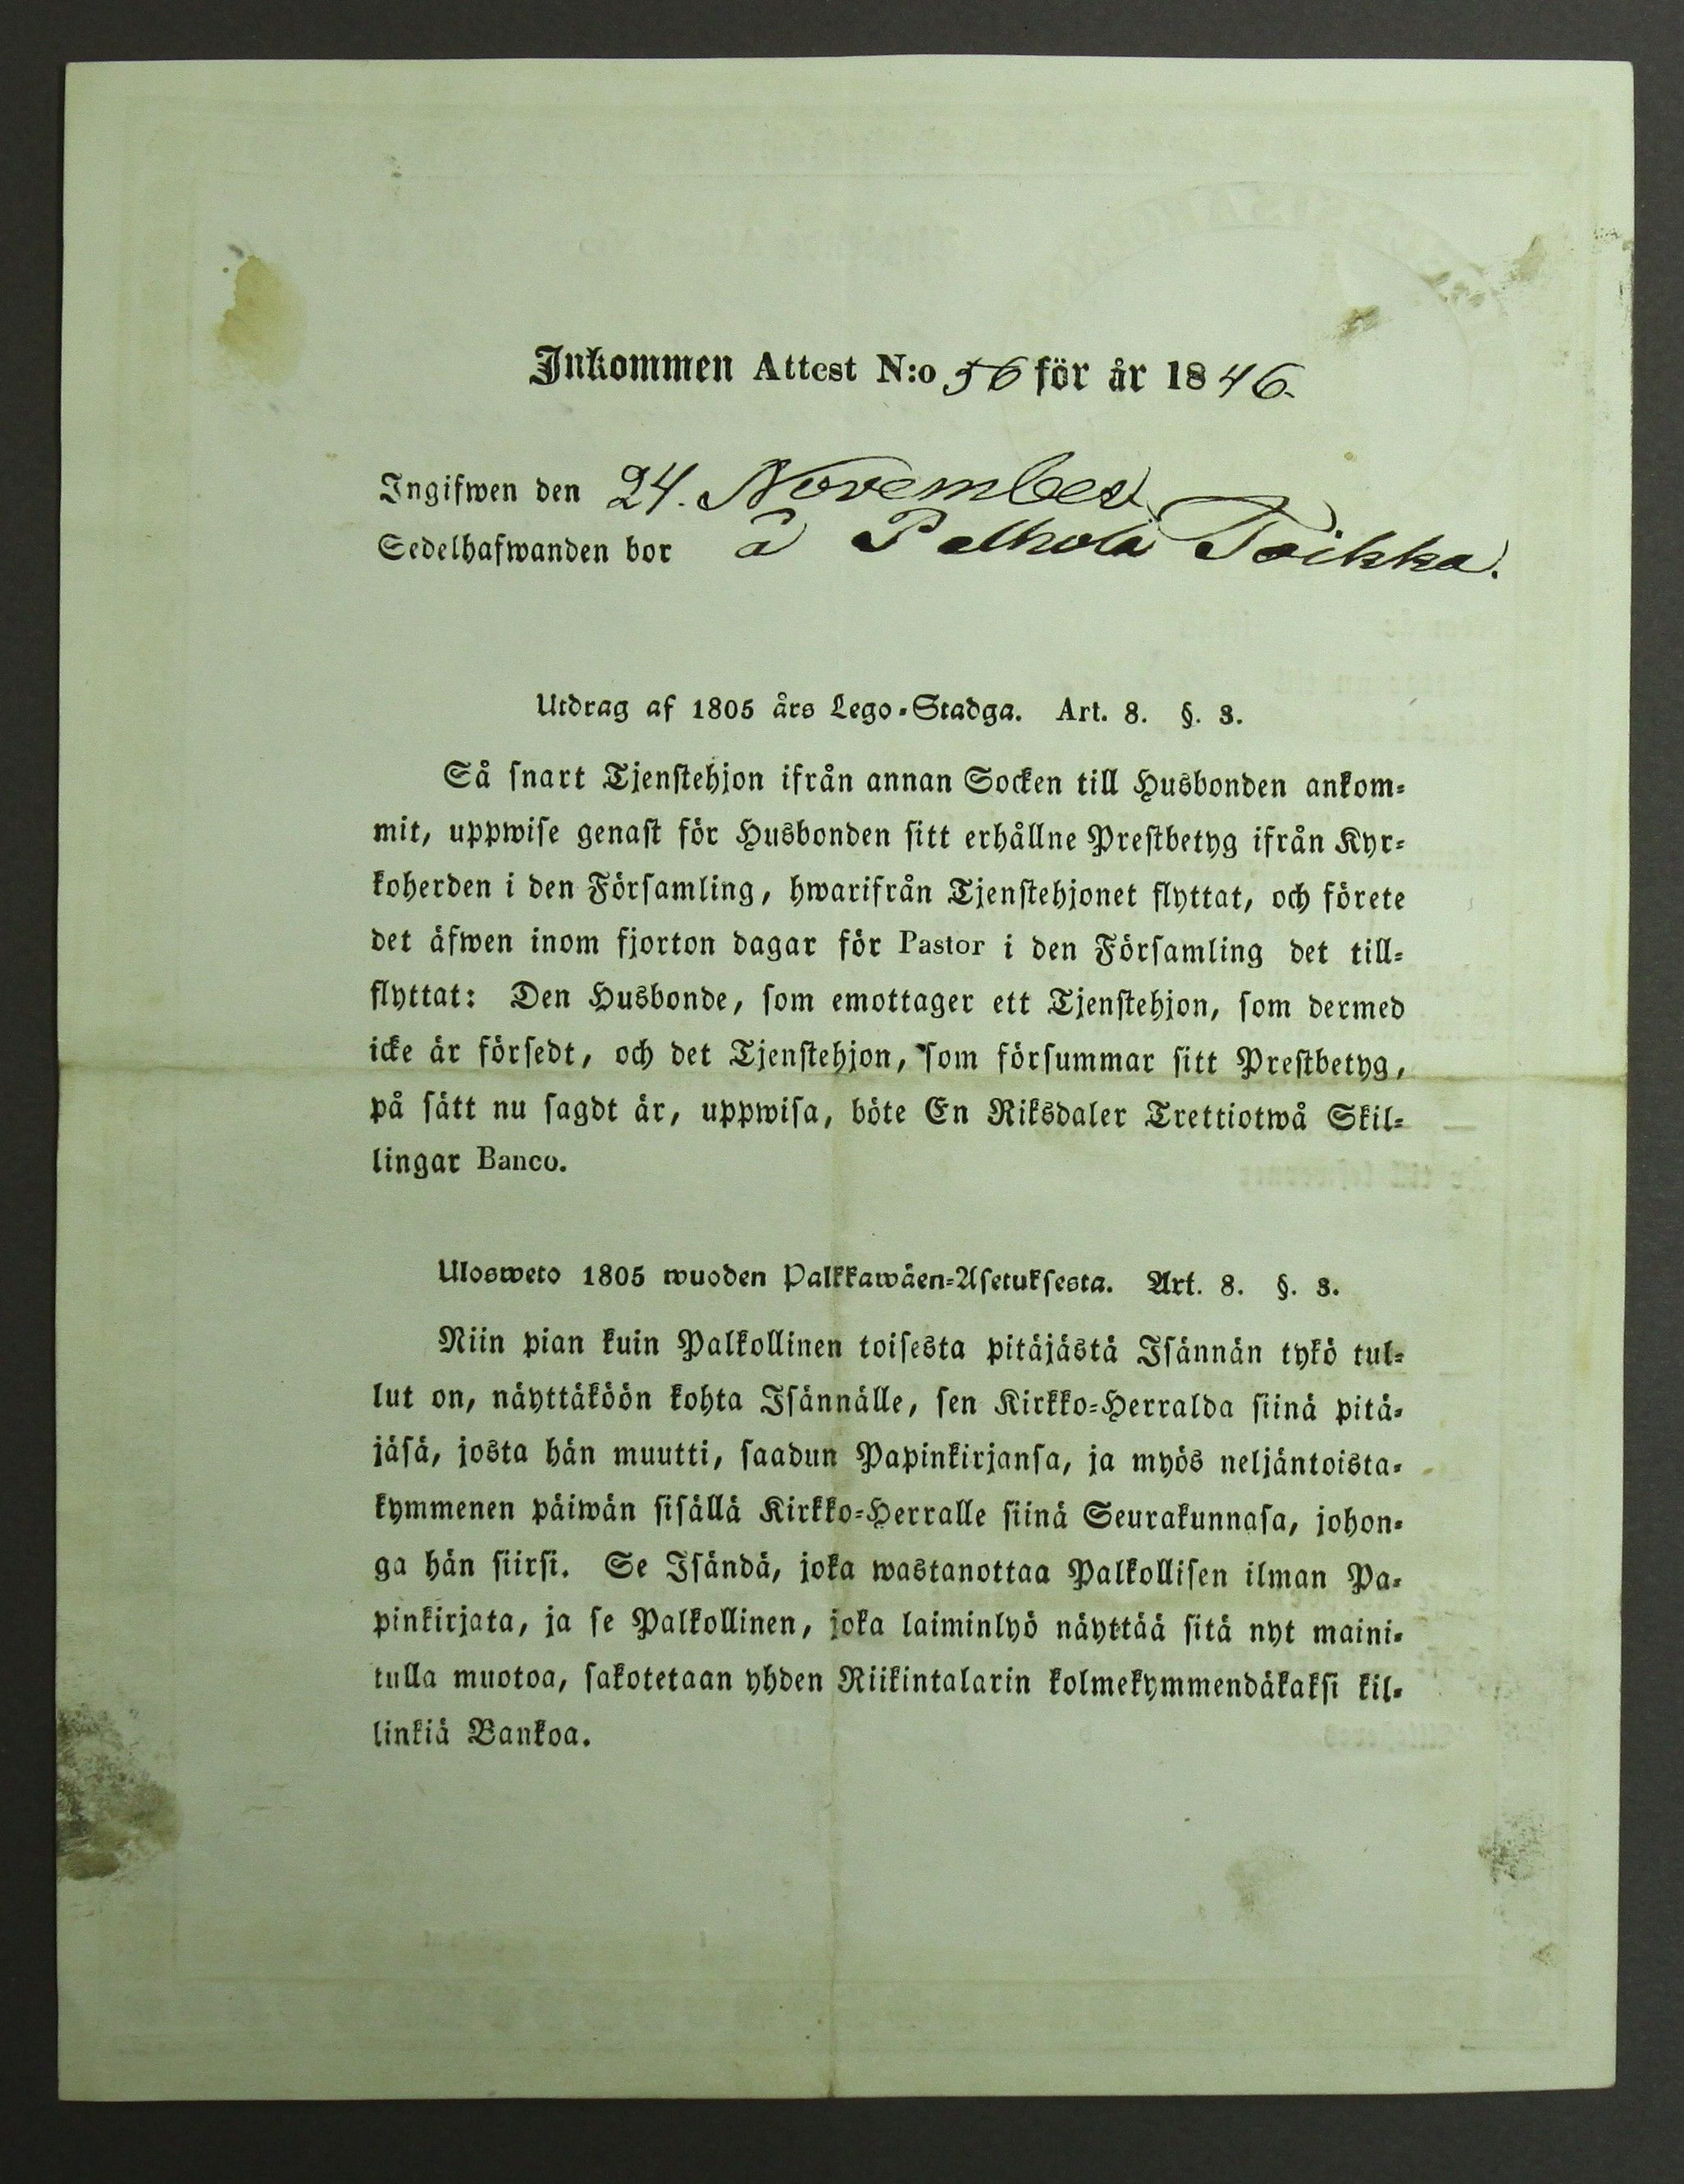 Inkommen Attest N:o 56 för år 1846.
Ingifwen den 24. November
Sedelhafwanden bor å Pelkola Toikka.
Utdrag af 1805 års Lego-Stadga. Art. 8. §. 3.
Så snart Tjenstehjon ifrån annan Socken till Husbonden ankom-
mit, uppwise genast för Husbonden sitt erhållne Prestbetyg ifrån Kyr-
koherden i den Församling, hwarifrån Tjenstehjonet flyttat, och förete
det äfwen inom fjorton dagar för Pastor i den Församling det till-
flyttat: Den Husbonde, som emottager ett Tjenstehjon, som dermed
icke är försedt, och det Tjenstehjon, som försummar sitt Prestbetyg,
på sätt nu sagdt är, uppwisa, böte En Riksdaler Trettiotwå Skil-
lingar Banco.
Ulosweto 1805 wuoden Palkkawäen-Asetuksesta. Art. 8. §. 3.
Niin pian kuin Palkollinen toisesta pitäjästä Isännän tykö tul-
lut on, näyttäköön kohta Isännälle, sen Kirkko-Herralda siinä pitä-
jäsä, josta hän muutti, saadun Papinkirjansa, ja myös neljäntoista-
kymmenen päiwän sisällä Kirkko-Herralle siinä Seurakunnasa, johon-
ga hän siirsi. Se Isändä, joka wastanottaa Palkollisen ilman Pa-
pinkirjata, ja se Palkollinen, joka laiminlyö näyttää sitä nyt maini-
tulla muotoa, sakotetaan yhden Riikintalarin kolmekymmendäkaksi kil-
linkiä Bankoa.